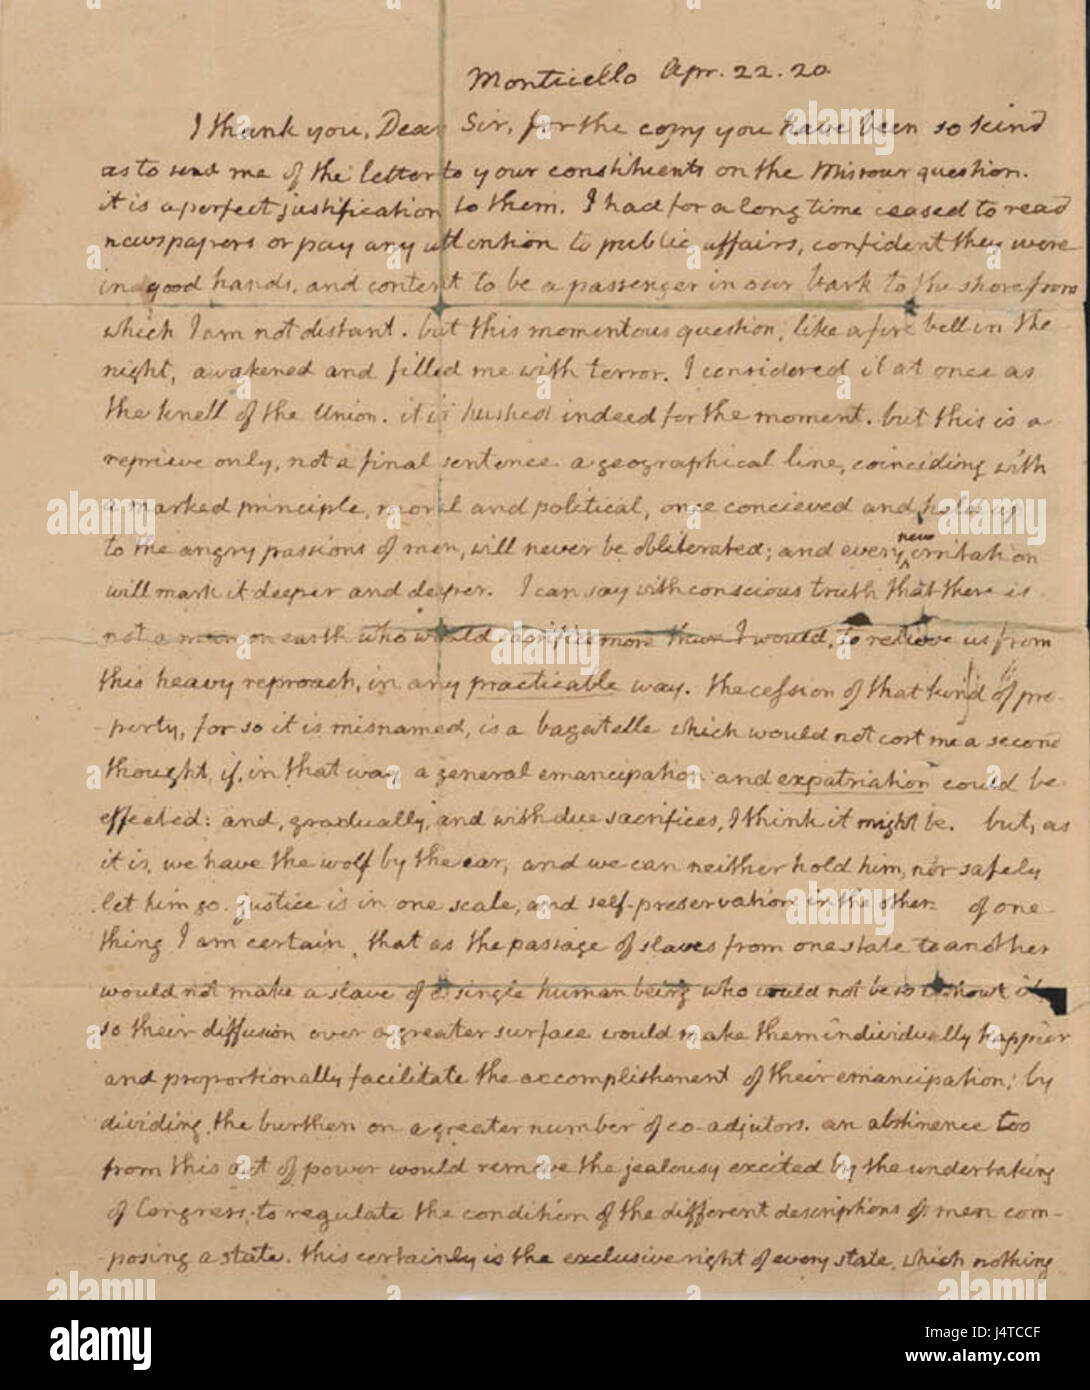 Monticello Apr. 22. 20.
I thank you, Dear Sir, for the copy you have been so kind
as to send me of the letter to your constituents on the Missouri question.
it is a perfect justification to them. I had for a long time ceased to read
newspapers or pay any attention to public affairs, confident they were
in good hands, and content to be a passenger in our bark to the shore from
which I am not distant. but this momentous question, like a fire bell in the
night, awakened and filled me with terror. I considered it at once as
the knell of the Union. it is hushed indeed for the moment. but this is a
reprieve only, not a final sentence. a geographical line, coinciding with
a marked principle, moral and political, once concieved and held up
to the angry passions of men, will never be obliterated; and every new irritation
will mark it deeper and deeper. I can say with conscious truth that there is
not a man on earth who would sacrifice more than I would, to relieve us from
this heavy reproach, in any practicable way. the cession of that kind of pro-
-perty, for so it is misnamed, is a bagatelle which would not cost me a second
thought, if, in that way, a general emancipation and expatriation could be
effected: and, gradually, and with due sacrifices, I think it might be. but, as
it is, we have the wolf by the ear, and we can neither hold him, nor safely
let him go. justice is in one scale, and self-preservation in the other. of one
thing I am certain, that as the passage of slaves from one state to another
would not make a slave of a single human being who would not be so without it
so their diffusion over a greater surface would make them individually happier
and proportionally facilitate the accomplishment of their emancipation; by
dividing the burthen on a greater number of co-adjutors. an abstinence too
from this act of power would remove the jealousy excited by the undertaking
of Congress, to regulate the condition of the different descriptions of men com-
-posing a state. this certainly is the exclusive right of every state, which nothing
alamy stock photo
J4TCCF
www.alamy.com